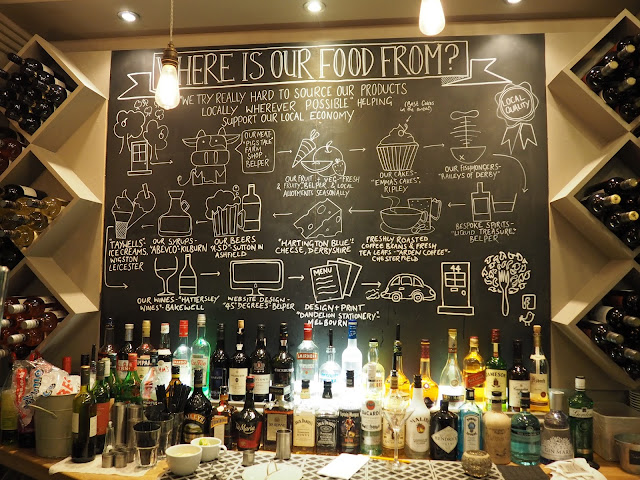 WHERE IS OUR FOOD FROM?
"WE TRY REALLY HARD TO SOURCE OUR PRODUCTS
LOCALLY WHEREVER POSSIBLE" HELPING
SUPPORT OUR LOCAL ECONOMY
(Best Cakes
in the area!)
LOCAL
QUALITY
MEM
OUR MEAT-
"PIGSTALE"
FARM
SHOP
BELPER
OUR FRUIT + VEG - "FRESH
& FRUITY" BELPER & LOCAL
ALLOTMENTS SEASONALLY
OUR CAKES-
"EMMA'S CAKES",
RIPLEY
OUR FISHMONGERS-
"RAILEYS OF DERBY"
TAYWELLS-
ICE CREAMS,
WIGSTON
LEICESTER
OUR SYRUPS-
"ABEVCO"- KILBURN
OUR BEERS
"4.5D" SUTTON IN
ASHFIELD
"HARTINGTON BLUE"
CHEESE, DERBYSHIRE
FRESHLY ROASTED
COFFEE BEANS & FRESH
TEA LEAFS -"ARDEN COFFEE"-
CHESTERFIELD
BESPOKE SPIRITS-
"LIQUID TREASURE",
BELPER
OUR WINES- "HATTERSLEY
WINES"- BAKEWELL
WEBSITE DESIGN-
"45 DEGREES" BELPER
MENU
DESIGN + PRINT
"DANDELION STATIONERY"
MELBOURN
44
SMIRNOFF
JACK
DANIEL'S
BACARDI
HENDRICK'S
JAMESON